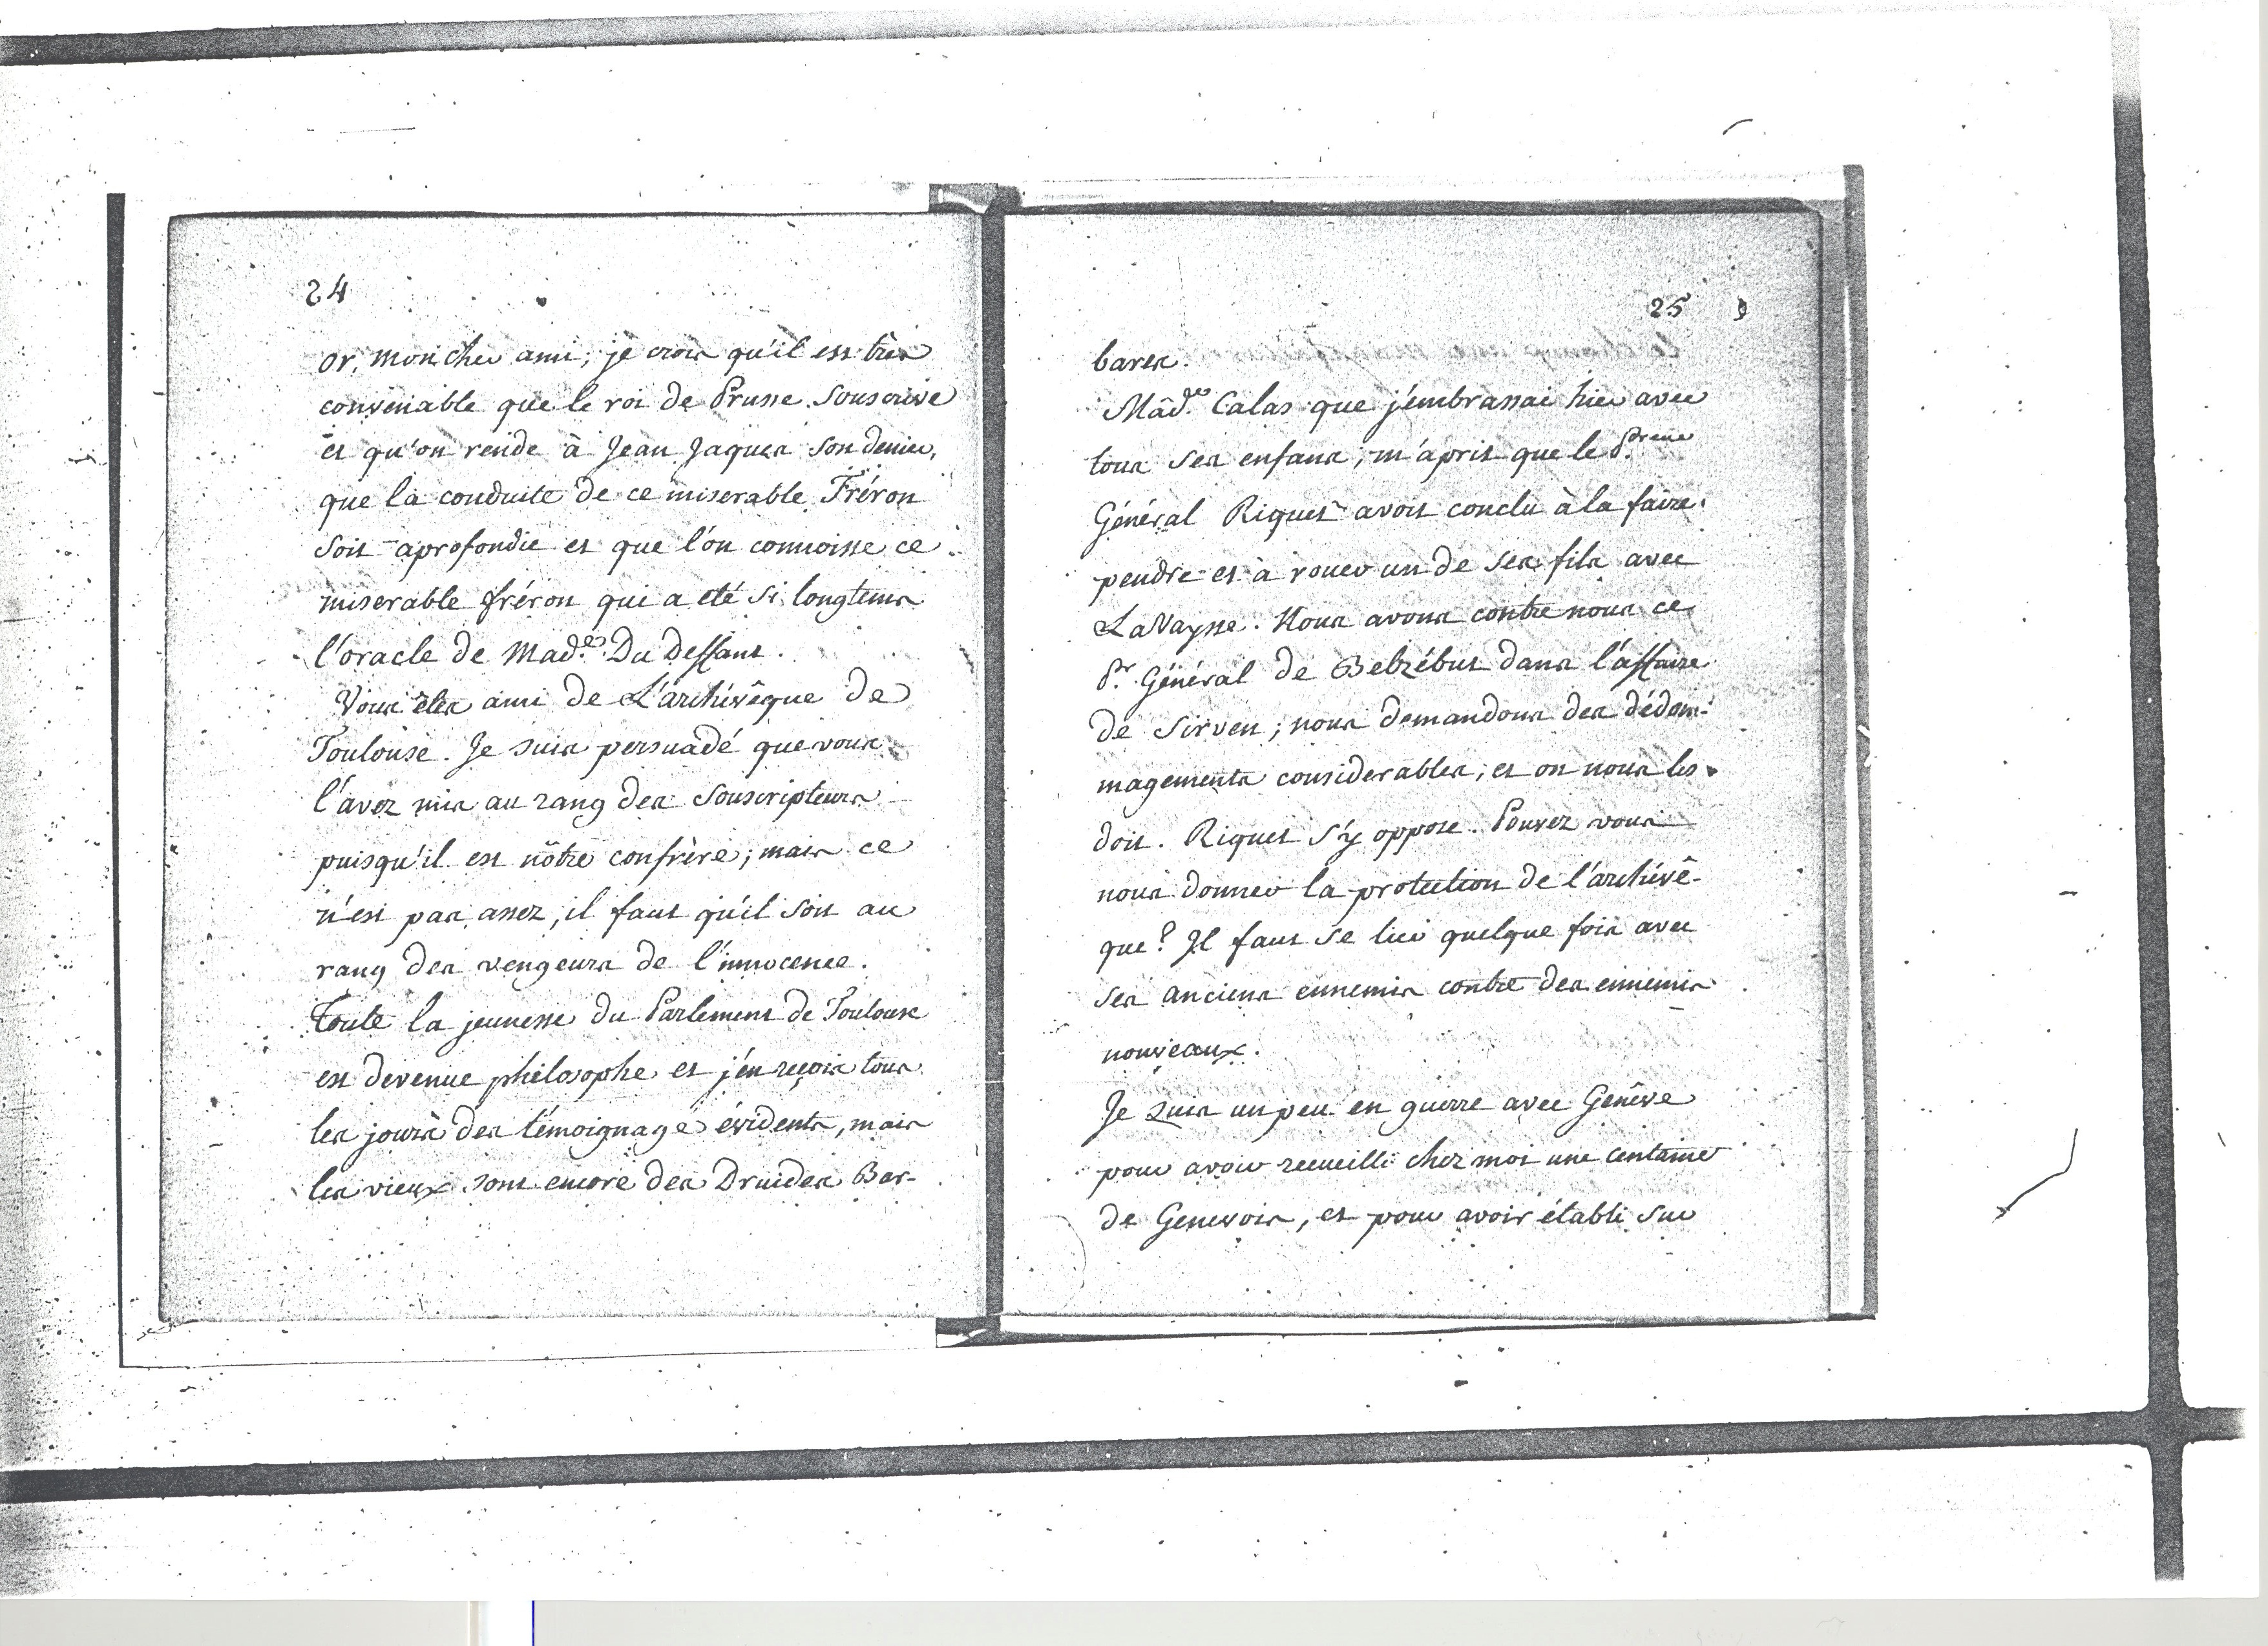 24
or, mon cher ami, je crois qu'il est très
convenable que le roi de Prusse souscrive
et qu'on rende à Jean Jaques son denier,
que la conduite de ce miserable Fréron
soit aprofondie et que l'on connoisse ce
miserable fréron qui a été si longtems
l'oracle de Mad.e Du Deffant.
Vous etes ami de L'archévêque de
Toulouse. Je suis persuadé que vous
l'avez mis au rang des souscripteurs
puisqu'il est nôtre confrère; mais ce
n'est pas assez, il faut qu'il soit au
rang des vengeurs de l'innocence.
Toute la jeunesse du Parlement de Toulouse
est devenue philosophe et j'en reçois tous
les jours des témoignage évidents, mais
les vieux sont encore des Druides Bar-
25
bares.
Mad.e Calas que j'embrassai hier avec
tous ses enfans, m'aprit que le P.dreur
Général Riquet avoit conclu à la faire
pendre et à rouer un de ses fils avec
LaVaysse. Nous avons contre nous ce
P.r Général de Belzébut dans l'affaire
de Sirven; nous demandons des dédom-
magements considerables, et on nous les
doit. Riquet s'y oppose. Pouvez vous
nous donner la protection de l'archévê-
que? Il faut se lier quelque fois avec
ses anciens ennemis contre des ennemis
nouveaux.
Je suis un peu en guerre avec Genêve
pour avoir recueilli chez moi une centaine
de Genevois, et pour avoir établi sur